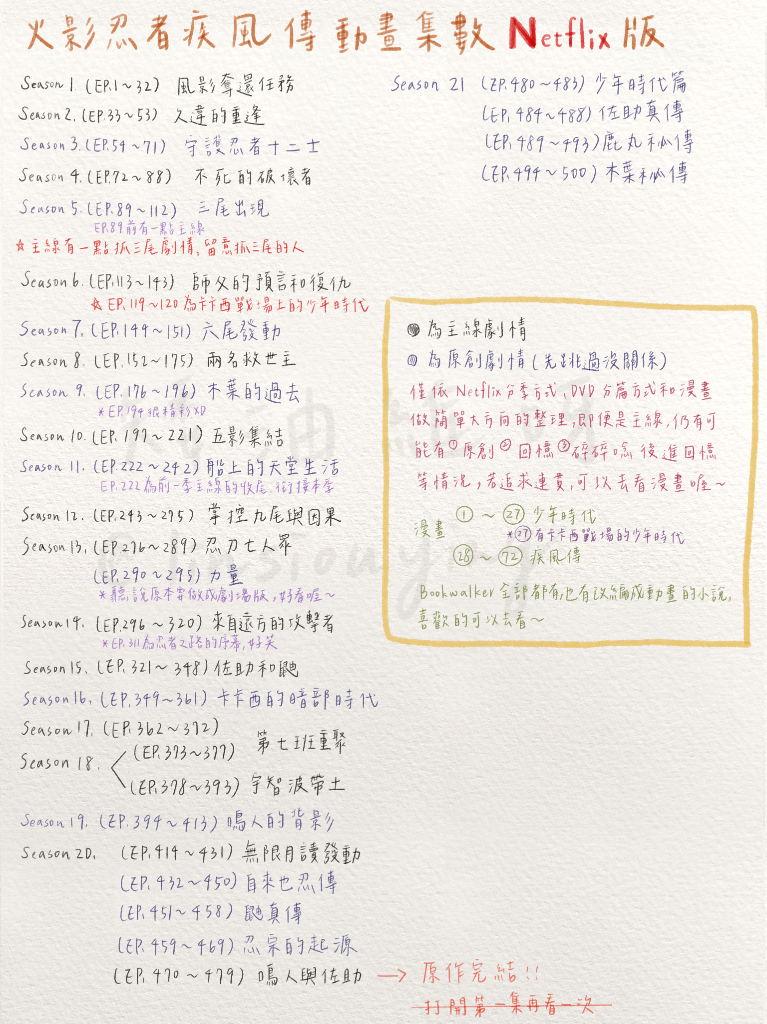 火影忍者疾風傳動畫集數 Netflix 版
Season 1 (EP.1~32) 風影奪還任務
Season 2. (EP.33~53) 久違的重逢
Season 3. (EP.54~71) 守護忍者十二士
Season 4. (EP.72~88) 不死的破壞者
Season 5. (EP.89~112) 三尾出現
EP.89前有一點主線
☆主線有一點抓三尾劇情,留意抓三尾的人
Season 6. (EP.113~143) 師父的預言和復仇
☆ EP.119~120 為卡卡西戰場上的少年時代
Season 7. (EP.144~151) 六尾發動
Season 8. (EP.152~175) 兩名救世主
Season 9. (EP.176~196) 木葉的過去
*EP.194很精彩XD
Season 10. (EP.197~221) 五影集結
Season 11. (EP.222~242) 船上的天堂生活
EP.222為前一季主線的收尾、銜接本季
Season 12. (EP.243~275) 掌控九尾與因果
Season 13. (EP.276~289) 忍刀七人眾
(EP.290~295) 力量
*聽說原本要做成劇場版,好看喔~
Season 14. (EP.296~320) 來自遠方的攻擊者
*EP.311為忍者之路的序幕,好笑
Season 15. (EP.321~348) 佐助和鼬
Season 16. (EP.349~361) 卡卡西的暗部時代
Season 17. (EP.362~372)
Season 18. (EP.373~377) 第七班重聚
(EP.378~393) 宇智波帶土
Season 19. (EP.394~413) 鳴人的背影
Season 20. (EP.414~431) 無限月讀發動
(EP.432~450) 自來也忍傳
(EP.451~458) 鼬真傳
(EP.459~469) 忍宗的起源
(EP.470~479) 鳴人與佐助 → 原作完結!!
打開第一集再看一次
Season 21 (EP.480~483) 少年時代篇
(EP.484~488) 佐助真傳
(EP.489~493) 鹿丸秘傳
(EP.494~500) 木葉秘傳
● 為主線劇情
● 為原創劇情 (先跳過沒關係)
僅依 Netflix 分季方式, DVD 分篇方式和漫畫
做簡單大方向的整理,即便是主線,仍有可
能有①原創②回憶③碎碎唸後進回憶
等情況,若追求連貫,可以去看漫畫喔~
漫畫 ①~㉗ 少年時代
*㉗有卡卡西戰場的少年時代
㉘~72 疾風傳
Bookwalker 全部都有,也有改編成動畫的小說,
喜歡的可以去看~